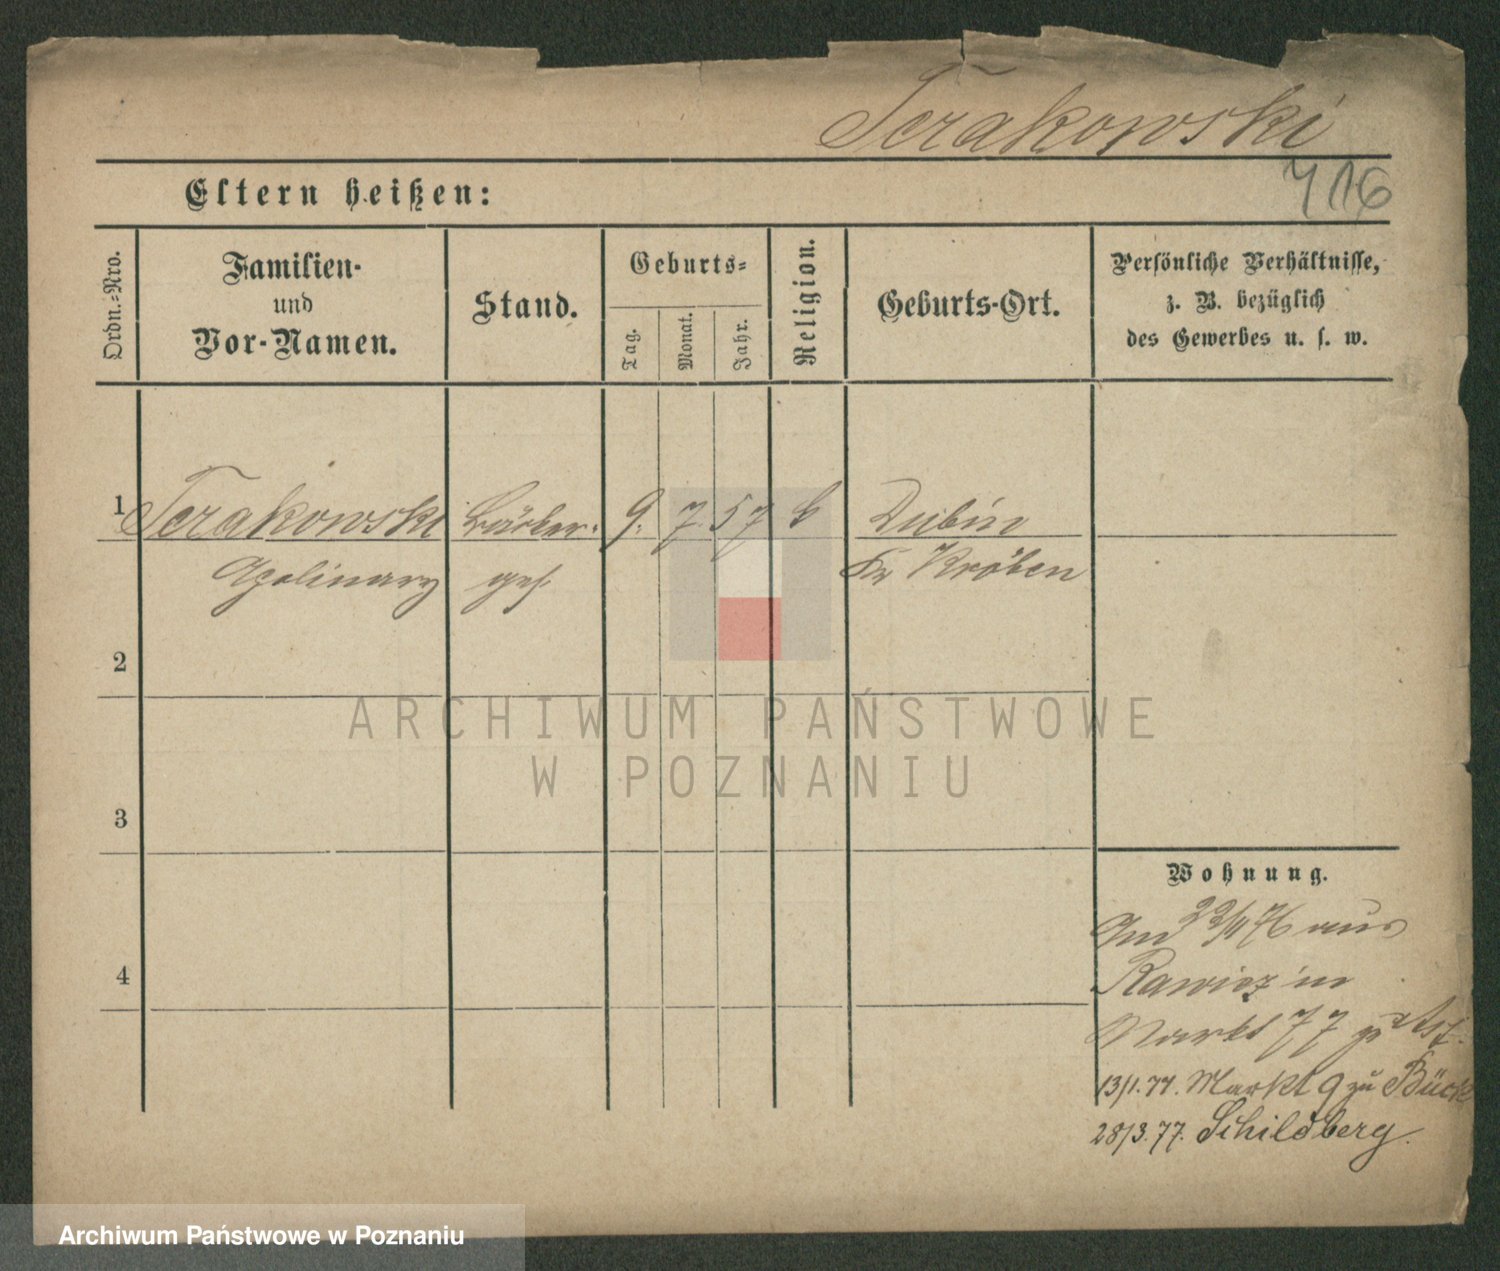 Terakowski
716
Eltern heißen:
Ordn.-Nro.
Familien-
und
Vor-Namen.
Stand.
Geburts-
Tag.
Monat.
Jahr.
Religion.
Geburts-Ort.
Persönliche Verhältnisse,
z. B. bezüglich
des Gewerbes u. s. w.
1 Terakowski Bäcker- 9. 7. 57 k Dubin
Apolinary ges. Kr Kröben
2
ARCHIWUM PAŃSTWOWE
W POZNANIU
3
Wohnung.
22/11 76 aus
4
Rawicz in
Markt 77
13/1. 77. Markt 9 zu Bück
28/3. 77. Schildberg.
Archiwum Państwowe w Poznaniu